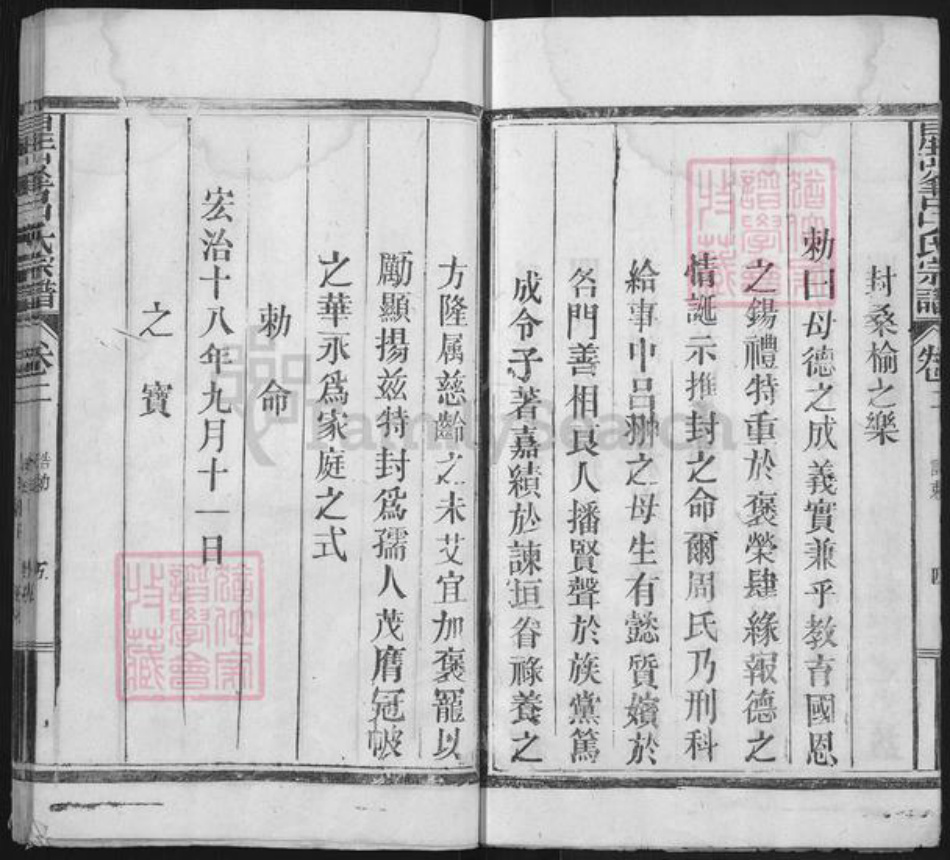 封桑榆之樂
勅曰母德之成義實兼乎教育國恩
之錫禮特重於褒榮肆緣報德之
情誕示推封之命爾周氏乃刑科
給事中吕翀之母生有懿質嬪於
名門善相良人播賢聲於族黨篤
成令子著嘉績於諫垣眷祿養之
方隆属慈齡之未艾宜加褒寵以
勵顯揚兹特封爲孺人茂膺冠帔
之華永爲家庭之式
勅命
宏治十八年九月十一日
之寶
吕氏宗譜
卷二
四
氏宗譜
卷二
譜學會
藏
譜學會
藏
FamilySearch